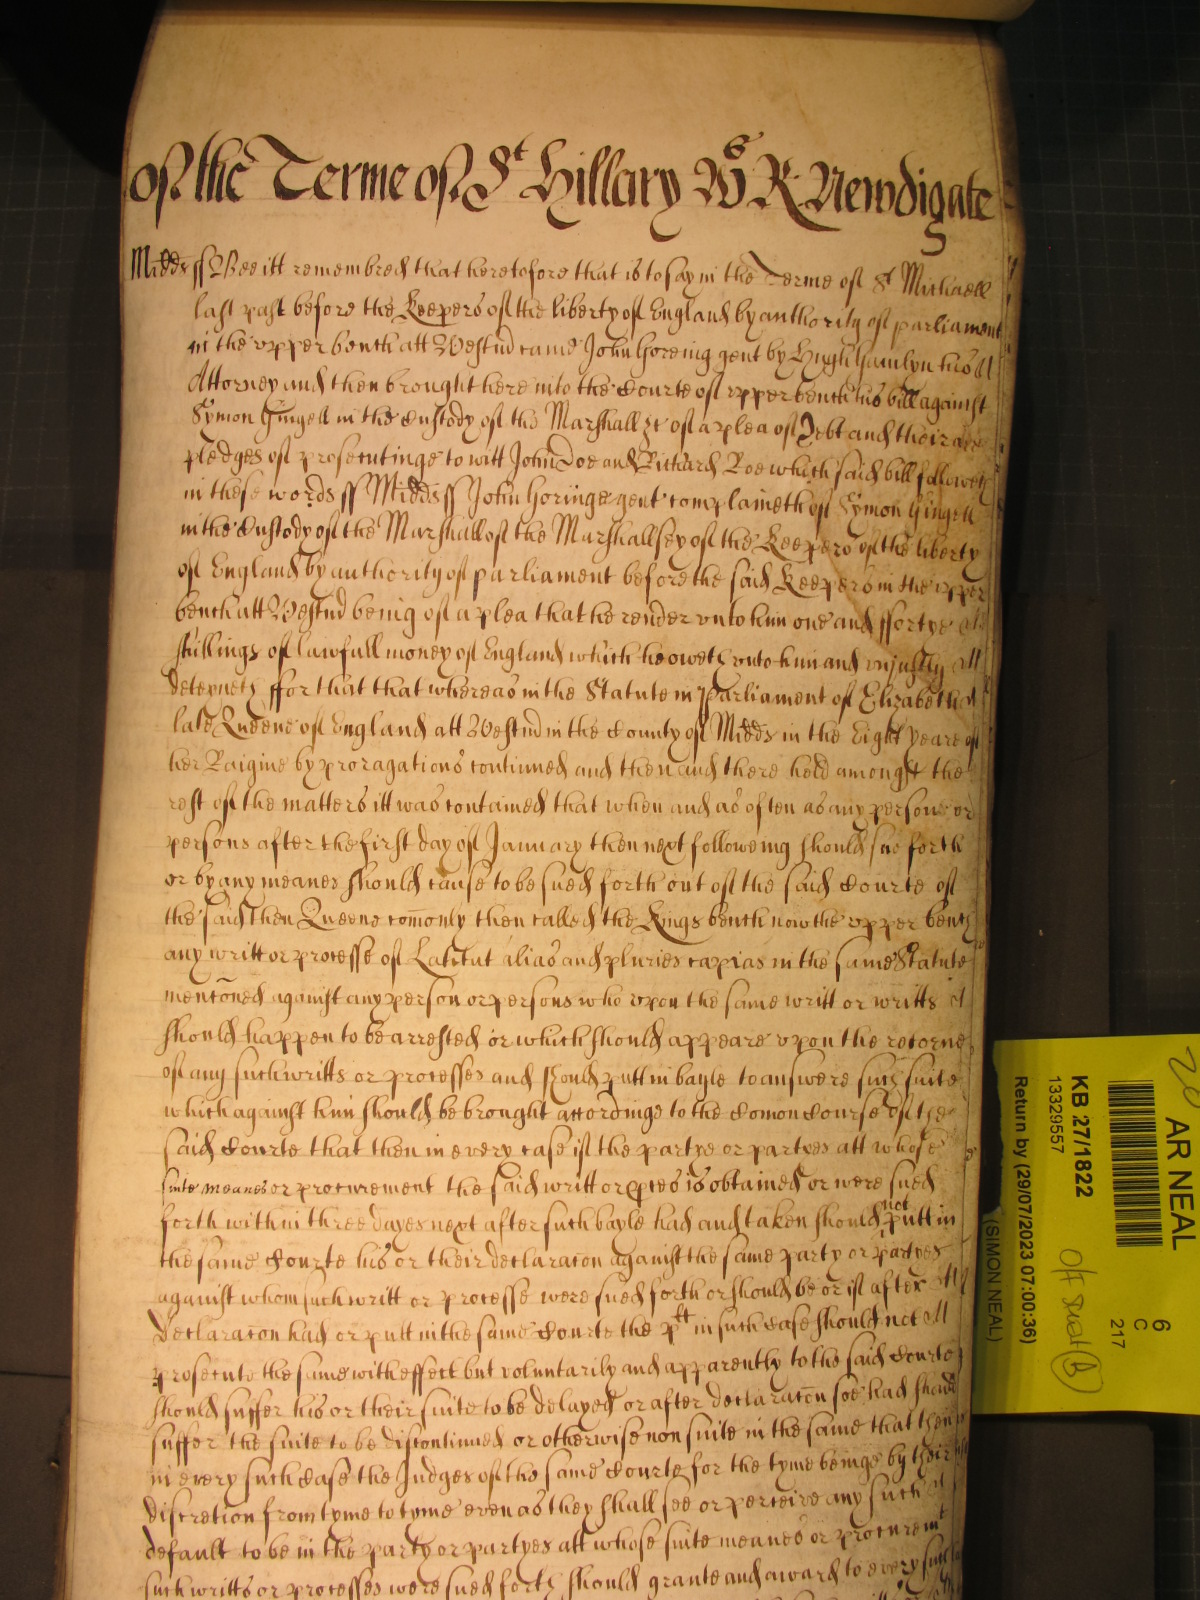 of the Terme of St Hillary W R Newdigate
Midds ss Bee itt remembred that heretofore that is to say in the Terme of St Michaell
last past before the Keepers of the liberty of England by authority of parliament
in the upper bench att Westmd came John Horeing gent by Hugh Hamlyn his
Attorney and then brought here into the Courte of upper bench his bill against
Symon Gingell in the Custody of the Marshall &c of a plea of Debt and their are
pledges of prosecutinge to witt John Doe and Richard Roe which said bill followeth
in these words ss Midds ss John Horeinge gent complaineth of Symon Gingell
in the Custody of the Marshall of the Marshallsey of the Keepers of the liberty
of England by authority of parliament before the said Keepers in the upper
bench att Westmd being of a plea that he render unto him one and ffortye
shillings of lawfull money of England which he oweth unto him and unjustly
deteyneth ffor that that whereas in the Statute in parliament of Elizabeth
late Queene of England att Westmd in the County of Midds in the Eight yeare of
her Raigine by proragations continued and then and there held amongst the
rest of the matters itt was contained that when and as often as any persone or
persons after the first day of January then next followeing should sue forth
or by any meanes should cause to be sued forth out of the said Courte of
the said then Queene comonly then called the Kings bench now the upper bench
any writt or processe of Latitat alias and pluries capias in the same Statute
mentoned against any person or persons who upon the same writt or writts
should happen to be arrested or which should appeare upon the retorne
of any such writts or processes and should putt in bayle to answere such suite
which against him should be brought accordinge to the Comon Course of the
said Courte that then in every case if the partye or partyes att whose
suite meanes or procurement the said writt or pces is obtained or were sued
forth within three dayes next after such bayle had and taken should not putt in
the same Courte his or their declaracon against the same party or partyes
against whom such writt or processe were sued forth or should be or if after
declaracon had or putt in the same Courte the plt in such Case should not
prosecute the same with effect but voluntarily and apparently to the said Courte
should suffer his or their suite to be delayed or after declaracon soe had should
suffer the suite to be discontinued or otherwise non suite in the same that then
in every such Case the Judges of the same Courte for the tyme beinge by their
discretion from tyme to tyme even as they shall see or perceive any such
default to be in the party or partyes att whose suite meanes or procuremt
such writts or processes were sued forth should grante and award to every such
AR NEAL
6
C
217
KB 27/1822
13329557
Return by (29/07/2023 07:00:36)
(SIMON NEAL)